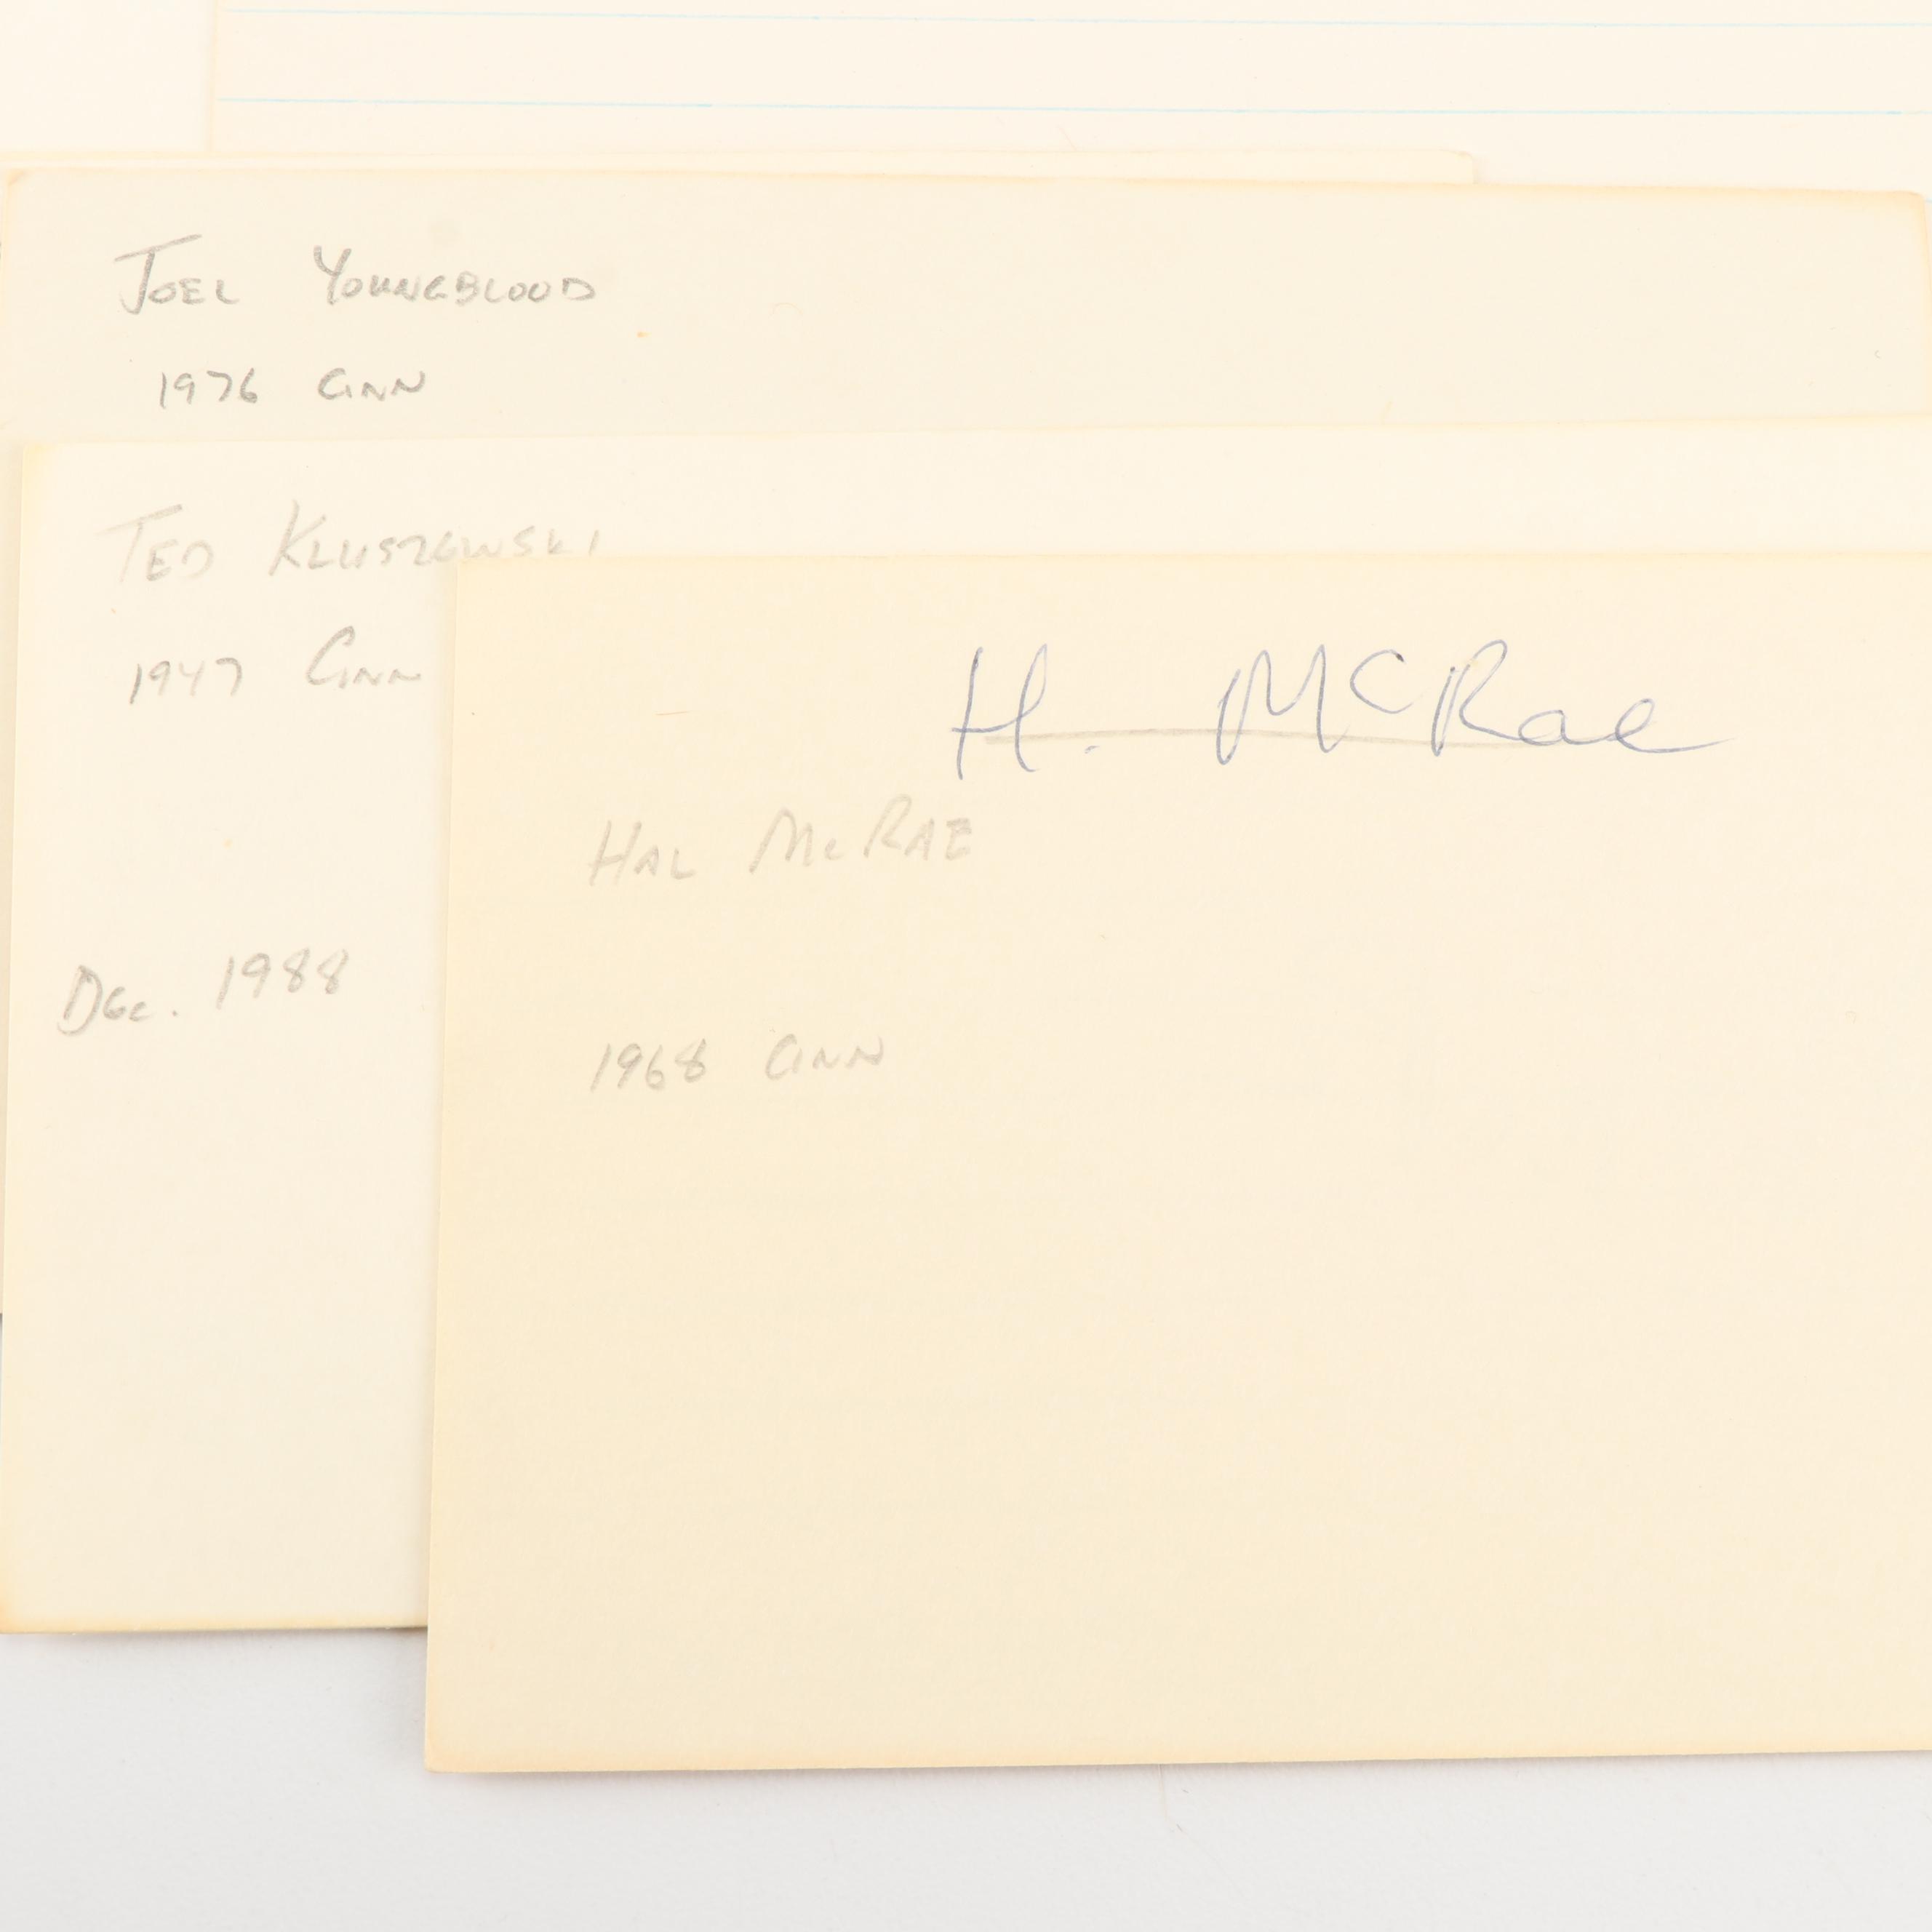 JOEL YOUNGBLOOD
1976 CINN
TED KLUSZEWSKI
1947 CINN
DEC. 1988
H. McRae
HAL McRAE
1968 CINN